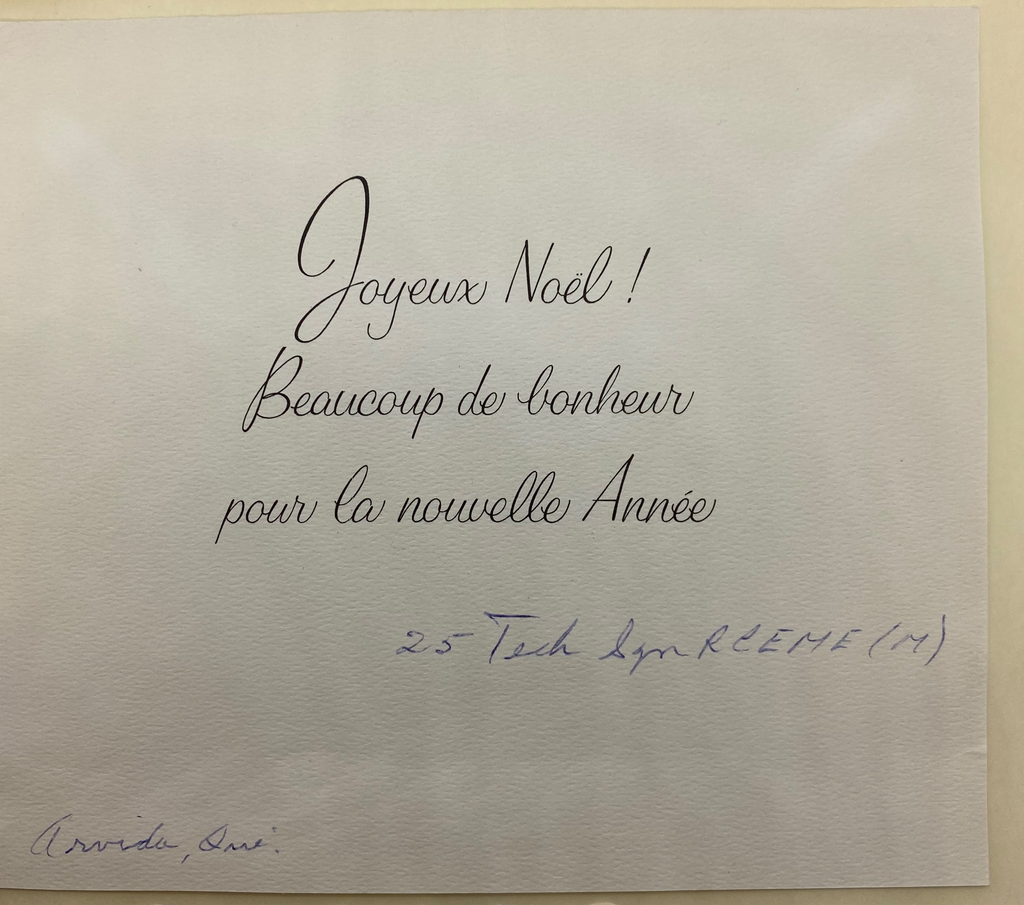 Joyeux Noël !
Beaucoup de bonheur
pour la nouvelle Année
25 Tech Sqn RCEME (M)
Arvida, Qué.